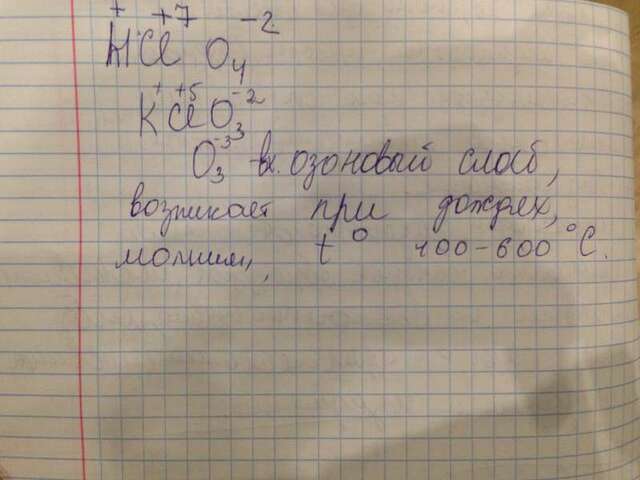 H⁺Cl⁺⁷O₄⁻²
K⁺Cl⁺⁵O₃⁻²
O₃ озоновый слой,
возникает при дождях,
молнии, t° 400-600 °C.